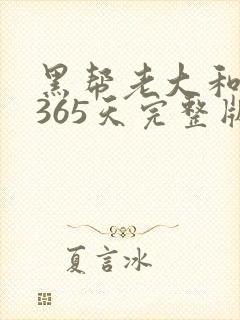 黑帮老大和
365天完整版
夏言冰